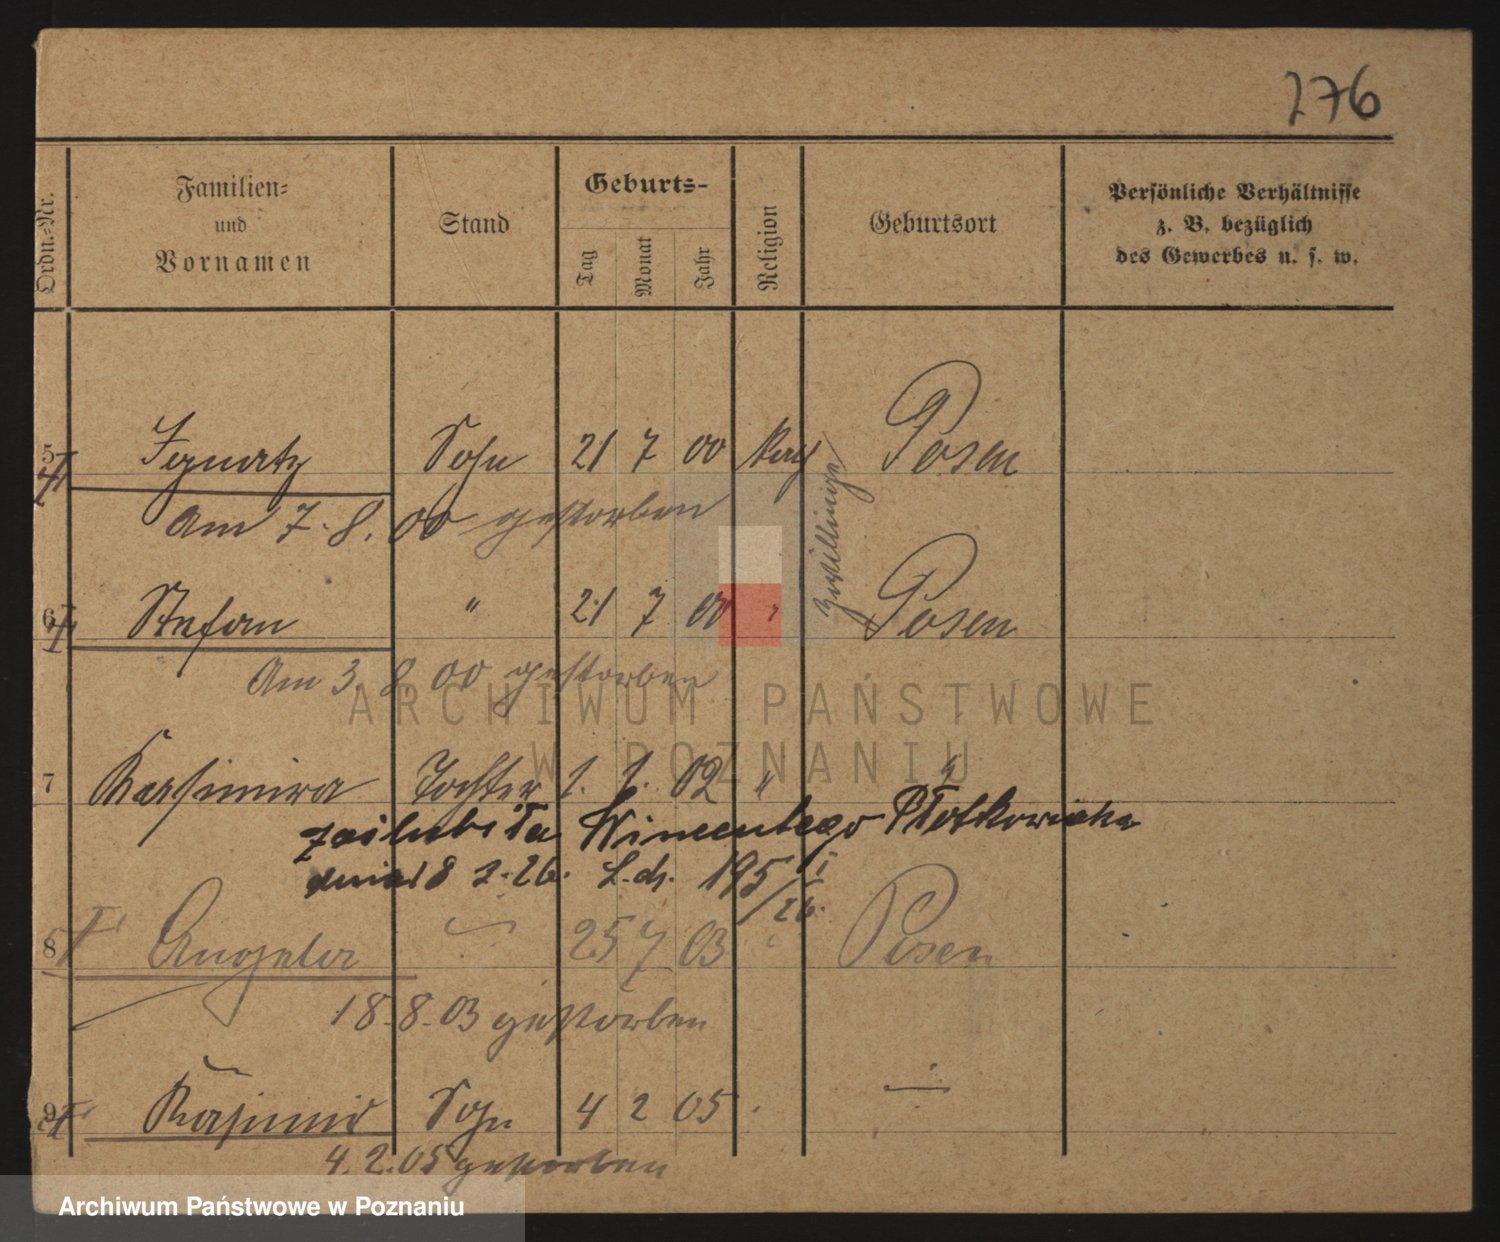 276
Ordn.-Nr.
Familien-
und
Vornamen
Stand
Geburts-
Tag
Monat
Jahr
Religion
Geburtsort
Persönliche Verhältnisse
z. B. bezüglich
des Gewerbes u. s. w.
5 Ignatz Sohn 21 7 00 Posen
Am 7. 8. 00 gestorben
Zwillinge
6 Stefan " 21 7 00 " Posen
Am 3. 8. 00 gestorben
7 Kasimira Tochter 1. 1. 02 " "
zaślubiła Wincentego Płotkowiaka
dnia 18 1. 26. L.dz. 195/26.
8 Angela " 25 7 03 " Posen
18.8.03 gestorben
9 Kasimir Sohn 4 2 05
4.2.05 gestorben
ARCHIWUM PAŃSTWOWE
W POZNANIU
Archiwum Państwowe w Poznaniu